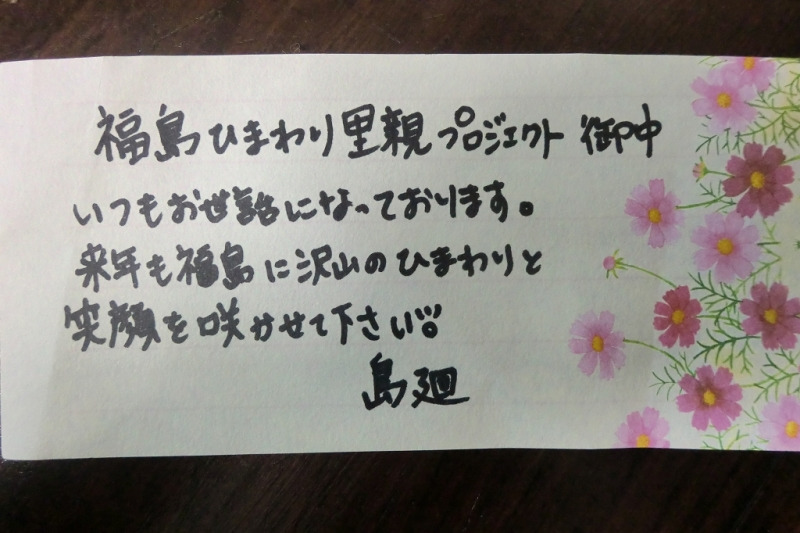 福島ひまわり里親プロジェクト 御中
いつもお世話になっております。
来年も福島に沢山のひまわりと
笑顔を咲かせて下さい。
島廻